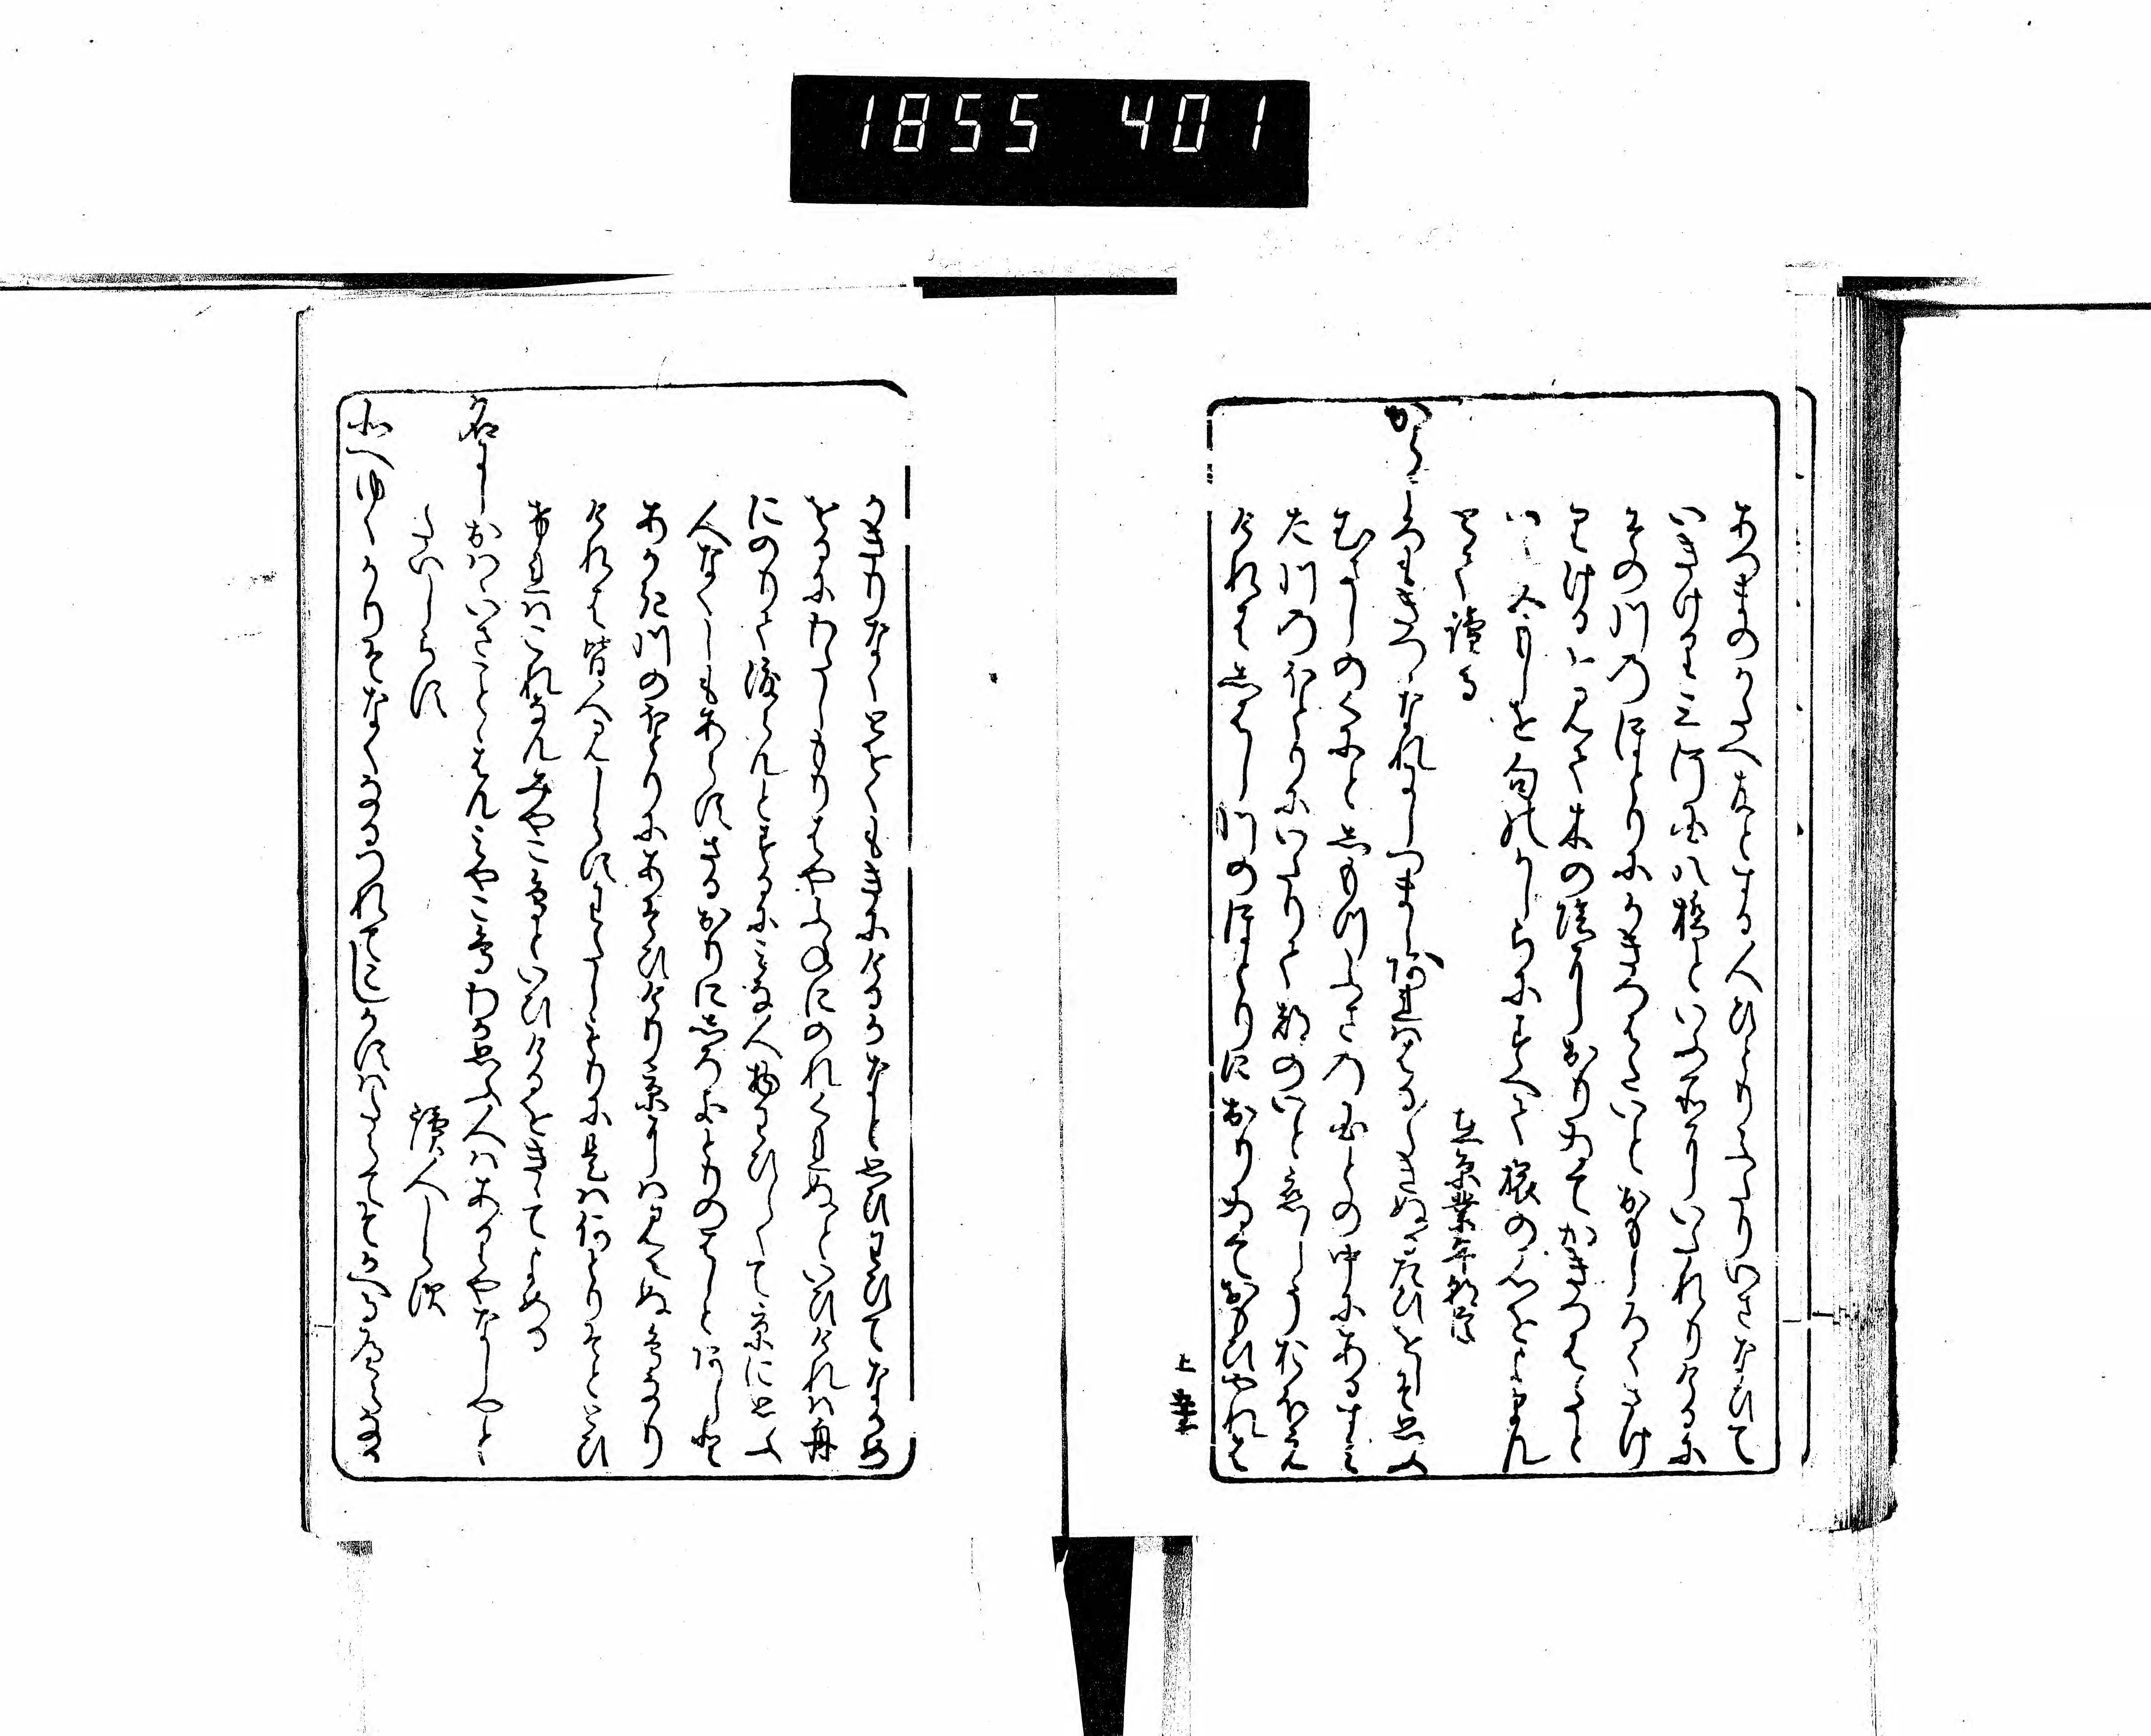 1855 401
あつまのかたへ友とする人ひとりふたりいさなひて
いきけり三河国八橋といふ所にいたれりけるに
その川のほとりにかきつはたいとおもしろくさけ
りけるを見て木の陰におりゐてかきつはたと
いふ五もしを句のかしらにすへて旅の心をよまん
とて読る
在原業平朝臣
から衣きつつなれにしつましあれははるはるきぬるたひをしそ思ふ
むさしのくにと下つふさの国との中にある
た川のほとりにいたりて都のいと恋しうおほえ
けれはしはし川のほとりにおりゐておもひやれは
上
かきりなくとをくもきにけるかなと思ひわひてなかめ
をるにわたしもりはや舟にのれくれぬといひけれは舟
にのりて渡らんとするにみな人物わひしくて京に思ふ
人なくしもあらすさるおりに白き鳥のはしとあしと
あかき川のほとりにあそひけり京には見えぬ鳥なり
けれは皆人見しらすわたしもりに是は何とりそととひ
けれはこれなんみやことりといひけるをききてよめる
名にしおはゝいさことゝはん都鳥わか思ふ人はありやなしやと
たいしらす
読人しらす
北へゆくかりそなくなるつれてこしかすはたらてそかへるへらなる